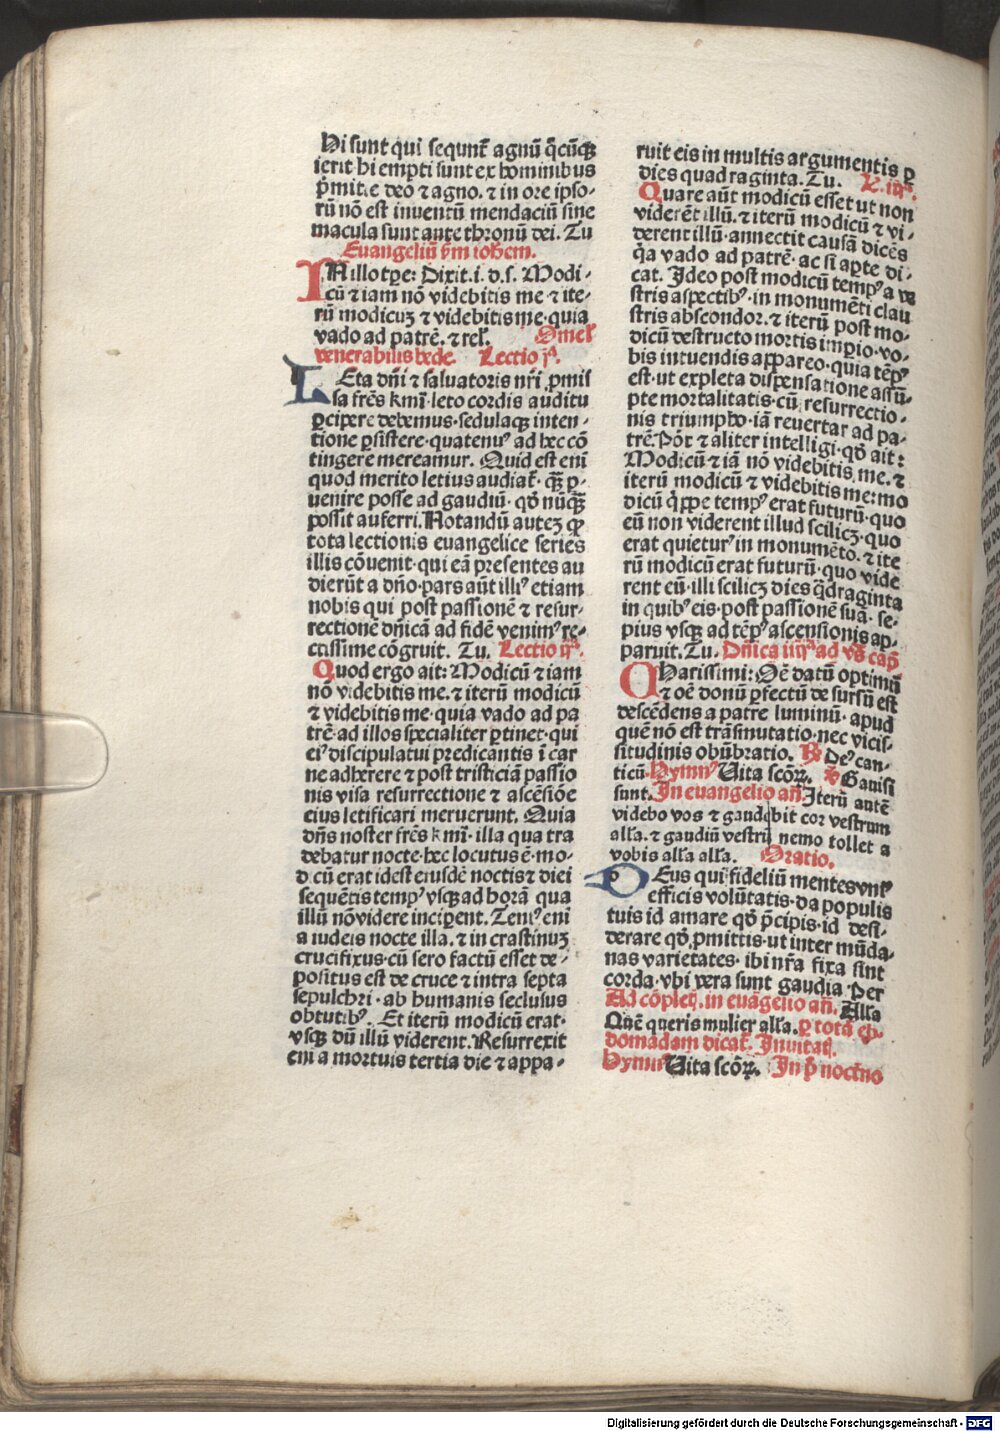 Hi sunt qui sequnt᷑ agnū q̄cūqꝫ
ierit hi empti sunt ex hominibus
p̄mitie deo ⁊ agno. ⁊ in ore ipso-
rū nō est inventū mendaciū sine
macula sunt ante thronū dei. Tu
Euangeliū s̄m ioh̄em.
IN illo tp̄e: Dixit .i. d. s. Modi-
cū ⁊ iam nō videbitis me ⁊ ite-
rū modicuꝫ ⁊ videbitis me·quia
vado ad patrē. ⁊ rel̕. Omel̕
venerabilis bede. Lectio jᵃ.
LEta dn̄i ⁊ saluatoris nr̄i ꝓmis
sa fr̄es k̄mi·leto cordis auditu
ꝑcipere debemus·sedulaqꝫ inten-
tione ꝑsistere·quatenꝰ ad hec cō
tingere mereamur. Quid est eni
quod merito letius audiat᷑· qꝫ ꝑ-
uenire posse ad gaudiū· qd̄ nūqꝫ
possit auferri. Notandū auteꝫ ꝙ
tota lectionis euangelice series
illis cōuenit·qui eā presentes au
dierūt a dn̄o·pars aūt illiꝰ etiam
nobis qui post passionē ⁊ resur-
rectionē dn̄icā ad fidē venimꝰ re-
ctissime cōgruit. Tu. Lectio ijᵃ.
Quod ergo ait: Modicū ⁊ iam
nō videbitis me. ⁊ iterū modicū
⁊ videbitis me·quia vado ad pa
trē·ad illos specialiter ꝑtinet·qui
eiꝰ discipulatui predicantis i car
ne adherere ⁊ post tristiciā passio
nis visa resurrectione ⁊ ascēsiōe
eius letificari meruerunt. Quia
dn̄s noster fr̄es k̄mi· illa qua tra
debatur nocte·hec locutus ē·mo-
dicū erat idest eiusdē noctis ⁊ diei
sequētis tempꝰ vsqꝫ ad horā qua
illū nō videre inciꝑent. Tentꝰ eni
a iudeis nocte illa. ⁊ in crastinuꝫ
crucifixus·cū sero factū esset de-
positus est de cruce ⁊ intra septa
sepulchri· ab humanis seclusus
obtutibꝰ. Et iterū modicū erat·
vsqꝫ dū illū viderent. Resurrexit
eni a mortuis tertia die ⁊ appa-
ruit eis in multis argumentis ꝑ
dies quadraginta. Tu. L. iijᵃ.
Quare aūt modicū esset ut non
viderēt illū. ⁊ iterū modicū ⁊ vi-
derent illū·annectit causā dicēs
q̄a vado ad patrē· ac si aꝑte di-
cat. Ideo post modicū tempꝰ a ve
stris aspectibꝰ·in monumēti clau
stris abscondor. ⁊ iterū post mo-
dicū destructo mortis imꝑio·vo-
bis intuendis appareo·quia tēpꝰ
est·ut expleta dispensatione assū-
pte mortalitatis·cū resurrectio-
nis triumpho·iā reuertar ad pa-
trē. Pōt ⁊ aliter intelligi·qd̄ ait:
Modicū ⁊ iā nō videbitis me. ⁊
iterū modicū ⁊ videbitis me: mo
dicū q̄ppe tempꝰ erat futurū·quo
eū non viderent illud scilicꝫ·quo
erat quieturꝰ in monumēto. ⁊ ite
rū modicū erat futurū·quo vide
rent eū·illi scilicꝫ dies q̄draginta
in quibꝰ eis·post passionē suā· se-
pius vsqꝫ ad tēpꝰ ascensionis ap-
paruit. Tu. Dn̄ica iiijᵃ ad vs̄ cap̄
CHarissimi: Oē datū optimū
⁊ oē donū ꝑfectū de sursū est
descēdens a patre luminū· apud
quē nō est trāsmutatio·nec vicis-
situdinis obūbratio. ℟ Deꝰ can-
ticū. Hymnꝰ Vita scōꝝ. ℣ Gauisi
sunt. In euangelio an̄. Iterū autē
videbo vos ⁊ gaudebit cor vestrum
all̕a. ⁊ gaudiū vestrū nemo tollet a
vobis all̕a all̕a. Oratio.
DEus qui fideliū mentes vniꝰ
efficis volūtatis·da populis
tuis id amare qd̄ p̄cipis·id desi-
derare qd̄ ꝓmittis·ut inter mūda-
nas varietates· ibi nr̄a fixa sint
corda·vbi vera sunt gaudia. Per
Ad cōplet̄. in euāgelio an̄. All̕a
Quē queris mulier all̕a. ꝑ totā eb-
domadam dicat᷑. Inuitat̄.
Hymnꝰ Vita scōꝝ. In p̄ noct̄no
Digitalisierung gefördert durch die Deutsche Forschungsgemeinschaft - DFG